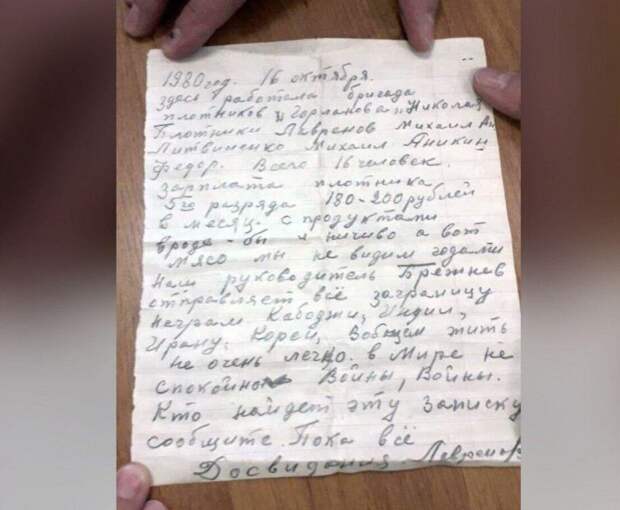 1980 год. 16 октября.
здесь работала бригада
плотников Горланова Николая
Плотники Лавренов Михаил Ан
Литвиненко Михаил Аникин
Федор. Всего 16 человек.
зарплата плотника
5го разряда 180-200 рублей
в месяц. с продуктами
вроде-бы и ничиво а вот
мясо мы не видим годами
Наш руководитель Брежнев
отправляет всё заграницу
Неграм, Кабоджи, Индии,
Ирану, Кореи, Вобщем жить
не очень легко. в Мире не
спокойно Войны, Войны.
Кто найдет эту Записку
сообщите. Пока всё
Досвидания. Лавренов